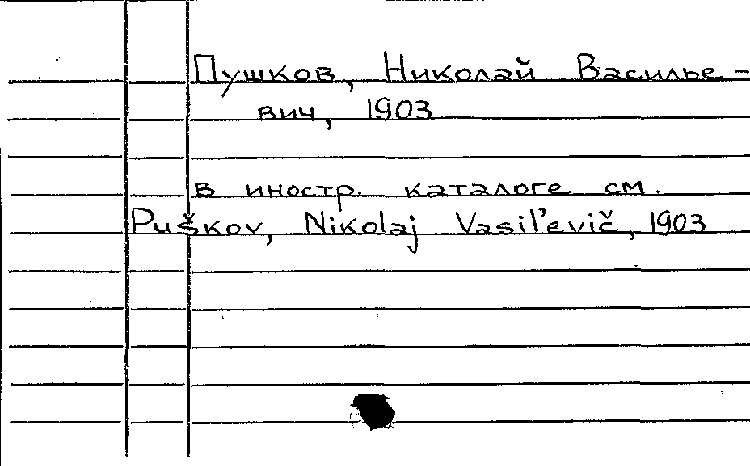 Пушков, Николай Василье-
вич, 1903
в иностр. каталоге см.
Puškov, Nikolaj Vasil'evič, 1903